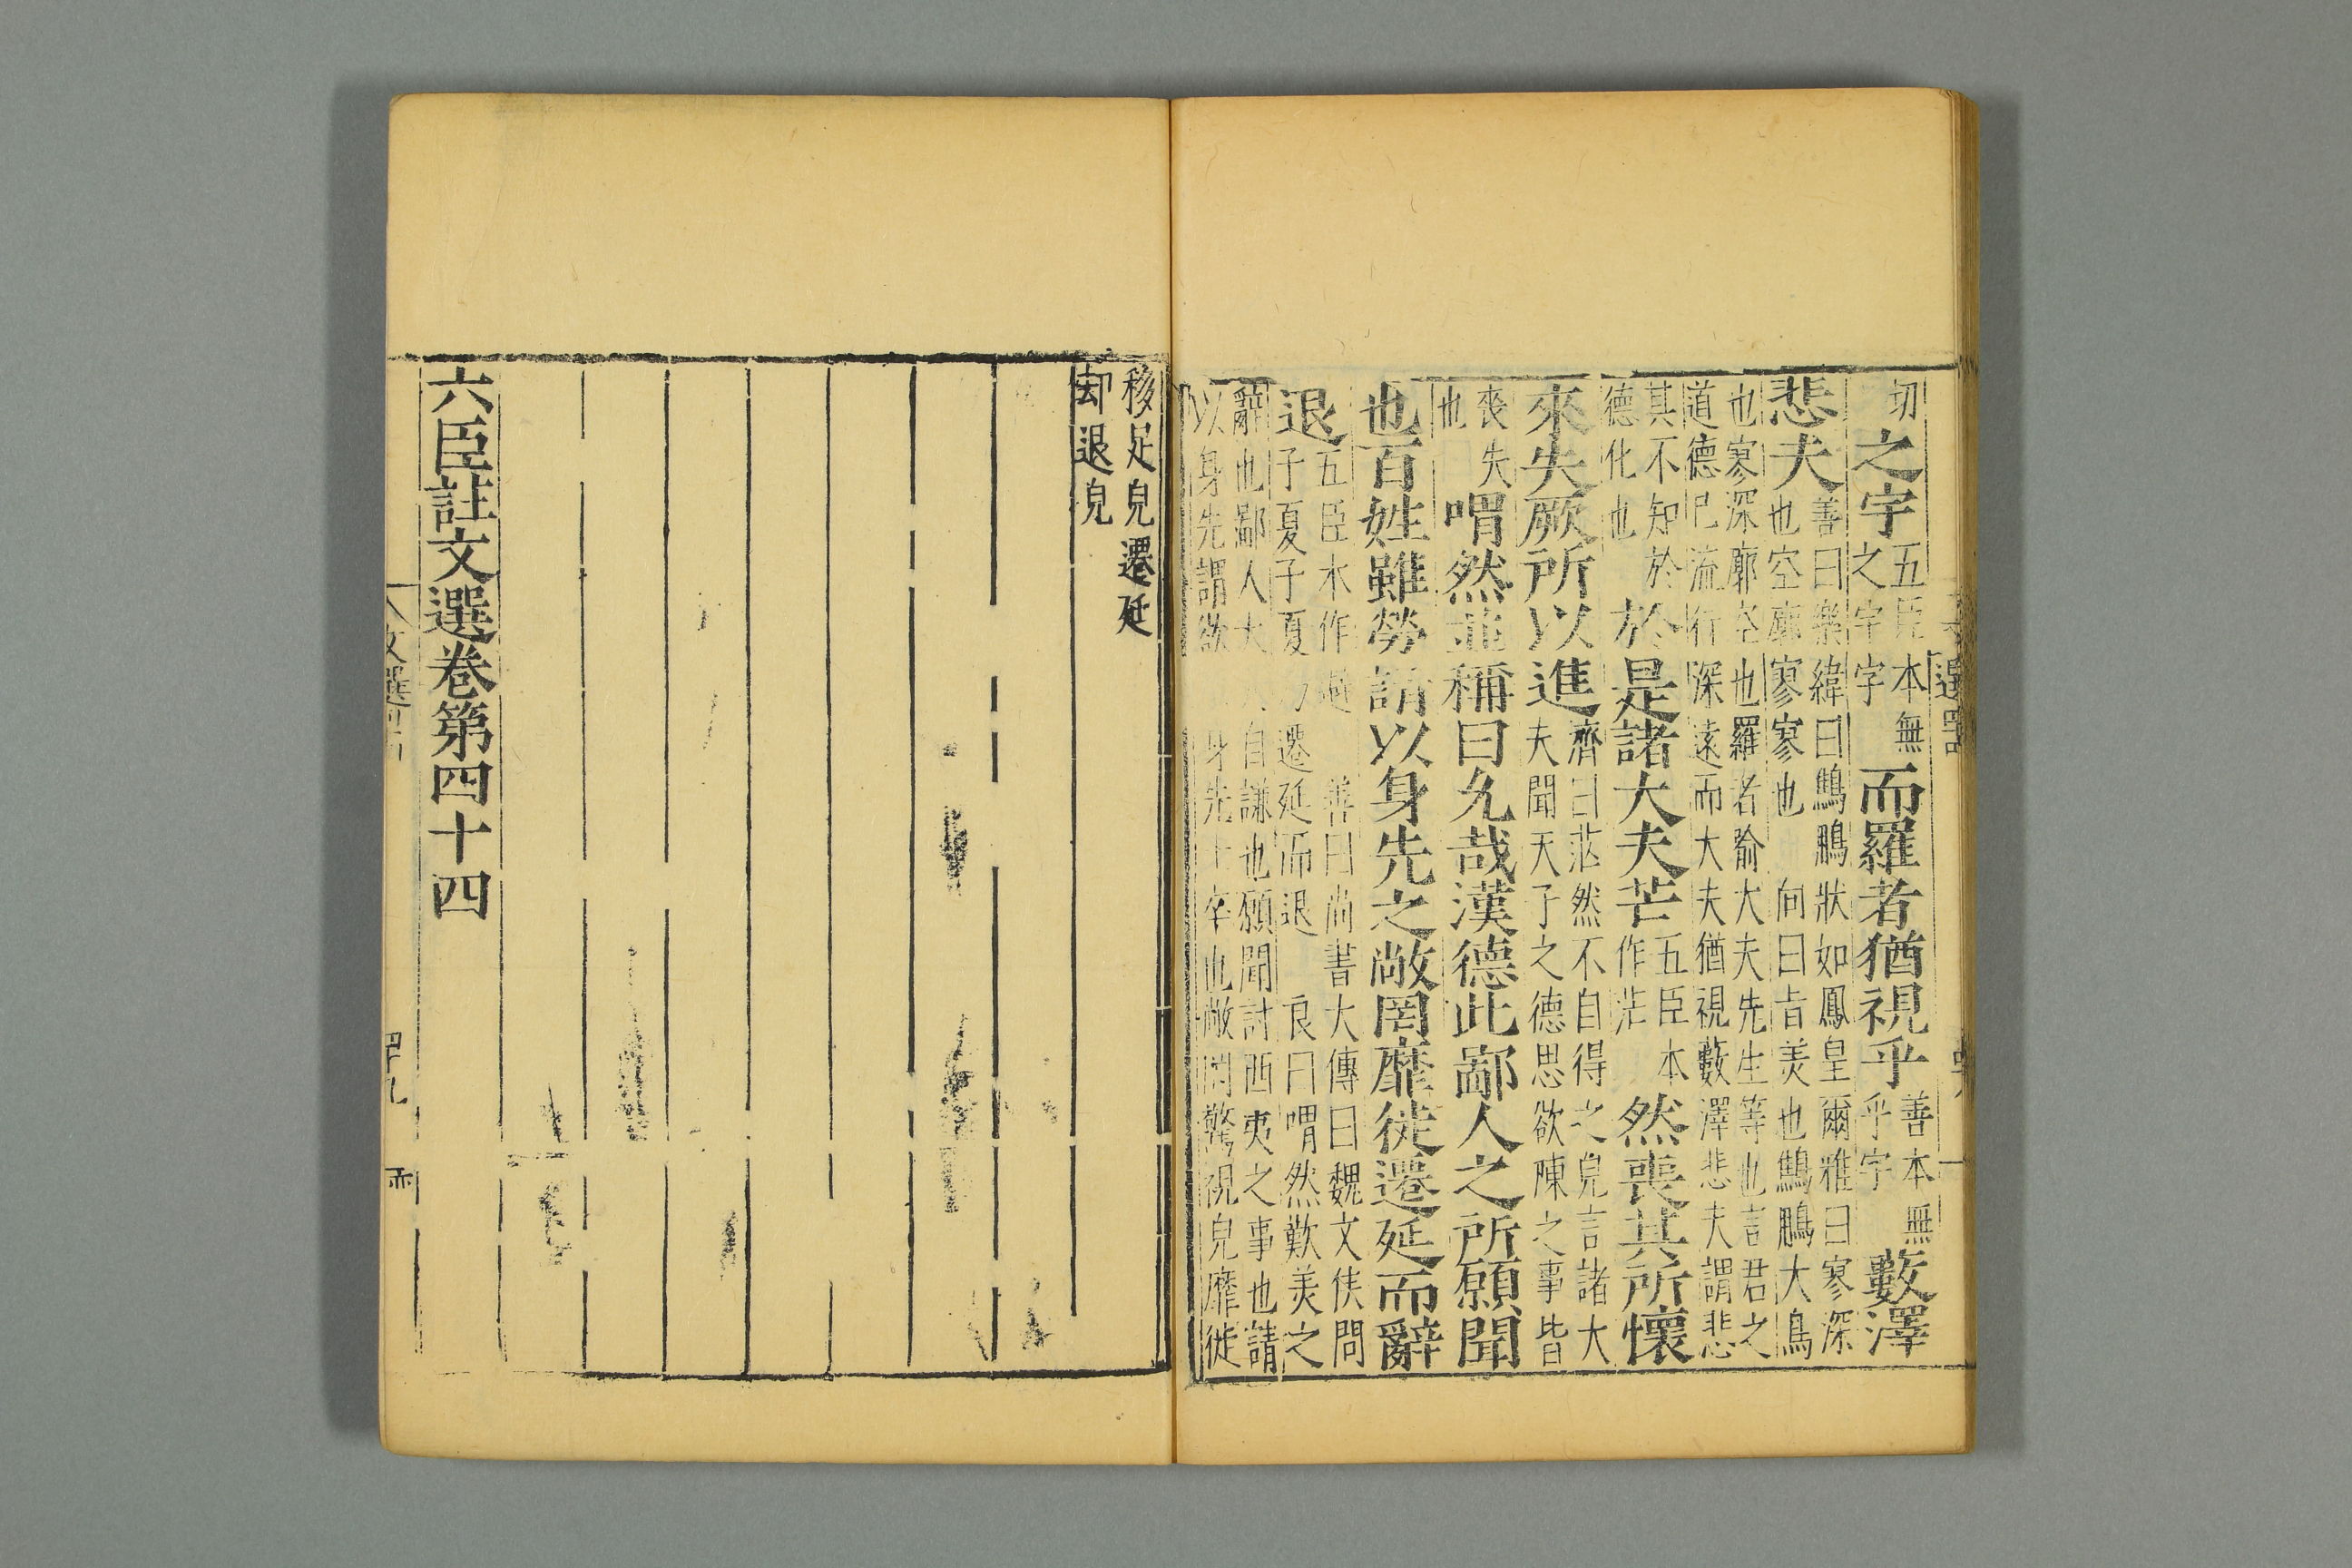 切之宇五臣本無之宇字而羅者猶視乎善本無乎字藪澤
悲夫善曰樂緯曰鷦鵬狀如鳳皇爾雅曰寥深也空廓寥寥也 向曰旨美也鷦鵬大鳥
也寥深廓空也羅者喻大夫先生等也言君之道德已流行深遠而大夫猶視藪澤悲夫謂悲
其不知於德化也於是諸大夫芒五臣本作茫然喪其所懷
來失厥所以進齊曰茫然不自得之皃言諸大夫聞天子之德思欲陳之事皆
喪失也喟然並稱曰允哉漢德此鄙人之所願聞
也百姓雖勞請以身先之敞罔靡徙遷延而辭
退五臣本作避 善曰尚書大傳曰魏文侯問子夏子夏 遷延而退 良曰喟然歎美之
辭也鄙人大 自謙也願聞討西夷之事也請以身先謂欲 身先士卒也敞罔驚視皃靡徙
移足皃遷延却退皃
六臣註文選卷第四十四